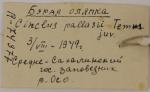 Бурая оляпка
Cinclus pallasii Temm.
juv
3/VIII - 1949г.
Средне-Сахалинский
гос. заповедник
р.